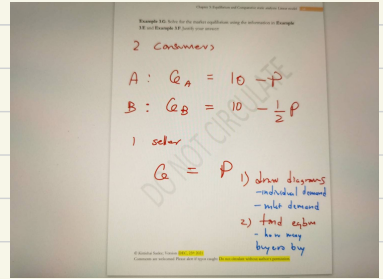 Example 1G. Solve for the market equilibrium using the information in Example
1E and Example 1F. Justify your answer.
2 consumers
A : QA = 10 - P
B : QB = 10 - 1/2 P
1 seller
Q = P
1) draw diagrams
- individual demand
- mkt demand
2) find eqbm
- how many
buyers buy
DO NOT CIRCULATE